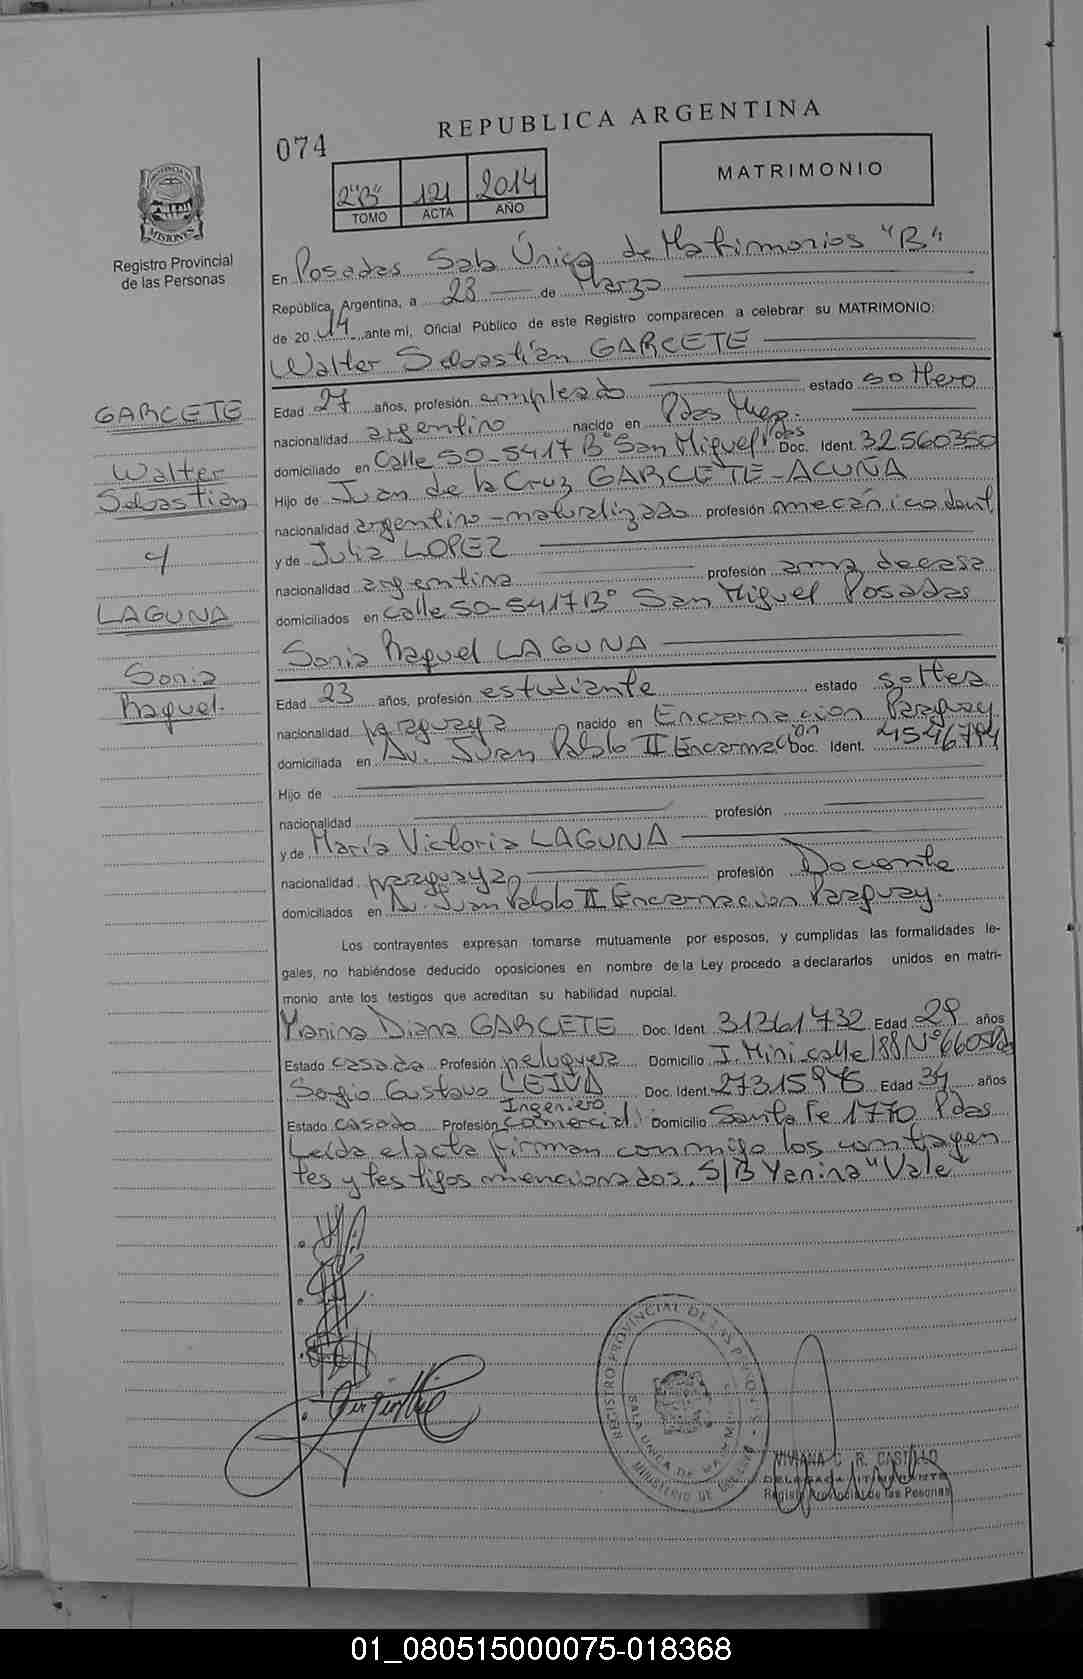 REPUBLICA ARGENTINA
074
2"B" 121 2014
TOMO ACTA AÑO
MATRIMONIO
MISIONES
Registro Provincial
de las Personas
En Posadas Sala Única de Matrimonios "B"
República Argentina, a 23 de Marzo
de 20 14 ante mi, Oficial Público de este Registro comparecen a celebrar su MATRIMONIO:
Walter Sebastián GARCETE
Edad 27 años, profesión empleado estado soltero
nacionalidad argentino nacido en Pdas Mnes.
domiciliado en Calle 50-5417 B° San Miguel Pdas Doc. Ident. 32560350
Hijo de Juan de la Cruz GARCETE-ACUÑA
nacionalidad argentino-naturalizado profesión mecánico dent
y de Julia LOPEZ
nacionalidad argentina profesión ama de casa
domiciliados en calle 50-5417 B° San Miguel Posadas
Sonia Raquel LAGUNA
Edad 23 años, profesión estudiante estado soltera
nacionalidad paraguaya nacido en Encarnación Paraguay
domiciliada en Av. Juan Pablo II Encarnación Doc. Ident. 4546794
Hijo de
nacionalidad profesión
y de María Victoria LAGUNA
nacionalidad paraguaya profesión Docente
domiciliados en Av. Juan Pablo II Encarnacion Paraguay.
Los contrayentes expresan tomarse mutuamente por esposos, y cumplidas las formalidades le-
gales, no habiéndose deducido oposiciones en nombre de la Ley procedo a declararlos unidos en matri-
monio ante los testigos que acreditan su habilidad nupcial.
Yanina Diana GARCETE Doc. Ident 31361732 Edad 29 años
Estado casada Profesión peluquera Domicilio I. Miní calle 188 N° 6605
Sergio Gustavo LEIVA Doc. Ident. 27315975 Edad 34 años
Estado casado Profesión Ingeniero comercial Domicilio Santa Fe 1770 Pdas
Leída el acta firman conmigo los contrayen
tes y testigos mencionados. S/B Yanina "Vale"
GARCETE
Walter
Sebastián
y
LAGUNA
Sonia
Raquel.
REGISTRO PROVINCIAL DE LAS PERSONAS
SALA UNICA DE MATRIMONIOS
MINISTERIO DE GOBIERNO
VIVIANA C. R. CASTILLO
DELEGADA ITINERANTE
Registro Provincial de las Personas
01_080515000075-018368